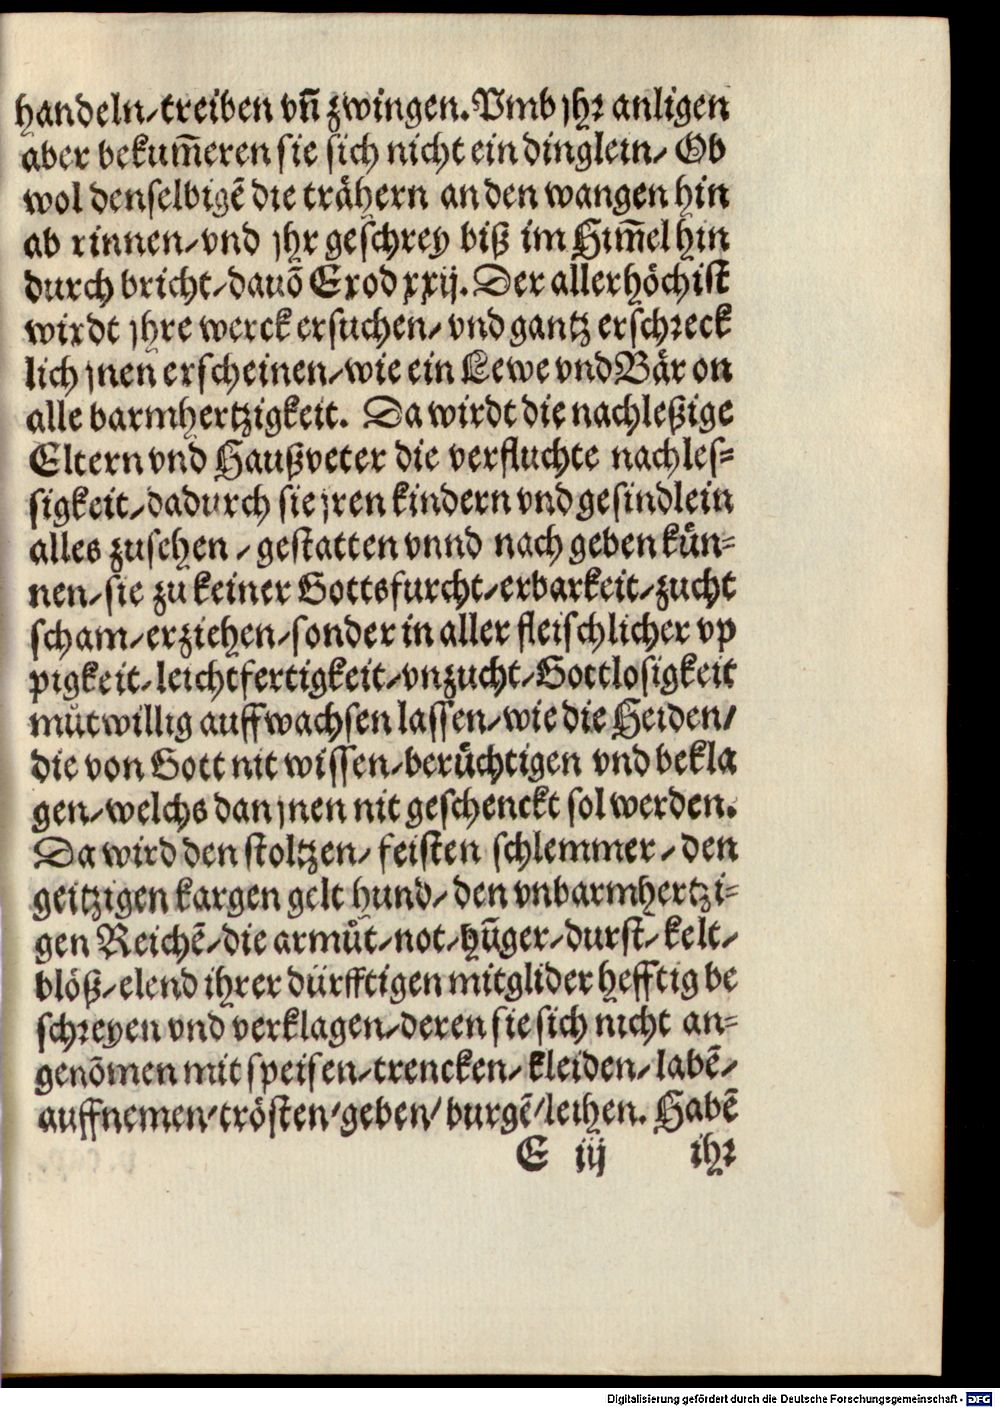 handeln/treiben vñ zwingen. Vmb jhr anligen
aber bekum̃eren sie sich nicht ein dinglein/ Ob
wol denselbigẽ die trähern an den wangen hin
ab rinnen/vnd jhr geschrey biß im Him̃el hin
durch bricht/dauõ Exod xxij. Der allerhöchist
wirdt jhre werck ersuchen/ vnd gantz erschreck
lich jnen erscheinen/wie ein Lewe vnd Bär on
alle barmhertzigkeit. Da wirdt die nachleßige
Eltern vnd Haußveter die verfluchte nachles=
sigkeit/dadurch sie jren kindern vnd gesindlein
alles zusehen/ gestatten vnnd nach geben kün=
nen/sie zu keiner Gottsfurcht/erbarkeit/zucht
scham/erziehen/sonder in aller fleischlicher vp
pigkeit/leichtfertigkeit/vnzucht/Gottlosigkeit
můtwillig auffwachsen lassen/wie die Heiden/
die von Gott nit wissen/berüchtigen vnd bekla
gen/welchs dan jnen nit geschenckt sol werden.
Da wird den stoltzen/ feisten schlemmer/ den
geitzigen kargen gelt hund/ den vnbarmhertzi=
gen Reichẽ/die armůt/not/hũger/durst/kelt/
blöß/elend ihrer dürfftigen mitglider hefftig be
schreyen vnd verklagen/deren sie sich nicht an=
genõmen mit speisen/trencken/ kleiden/labẽ/
auffnemen/trösten/geben/burgẽ/leihen. Habẽ
E iij ihr
Digitalisierung gefördert durch die Deutsche Forschungsgemeinschaft - DFG